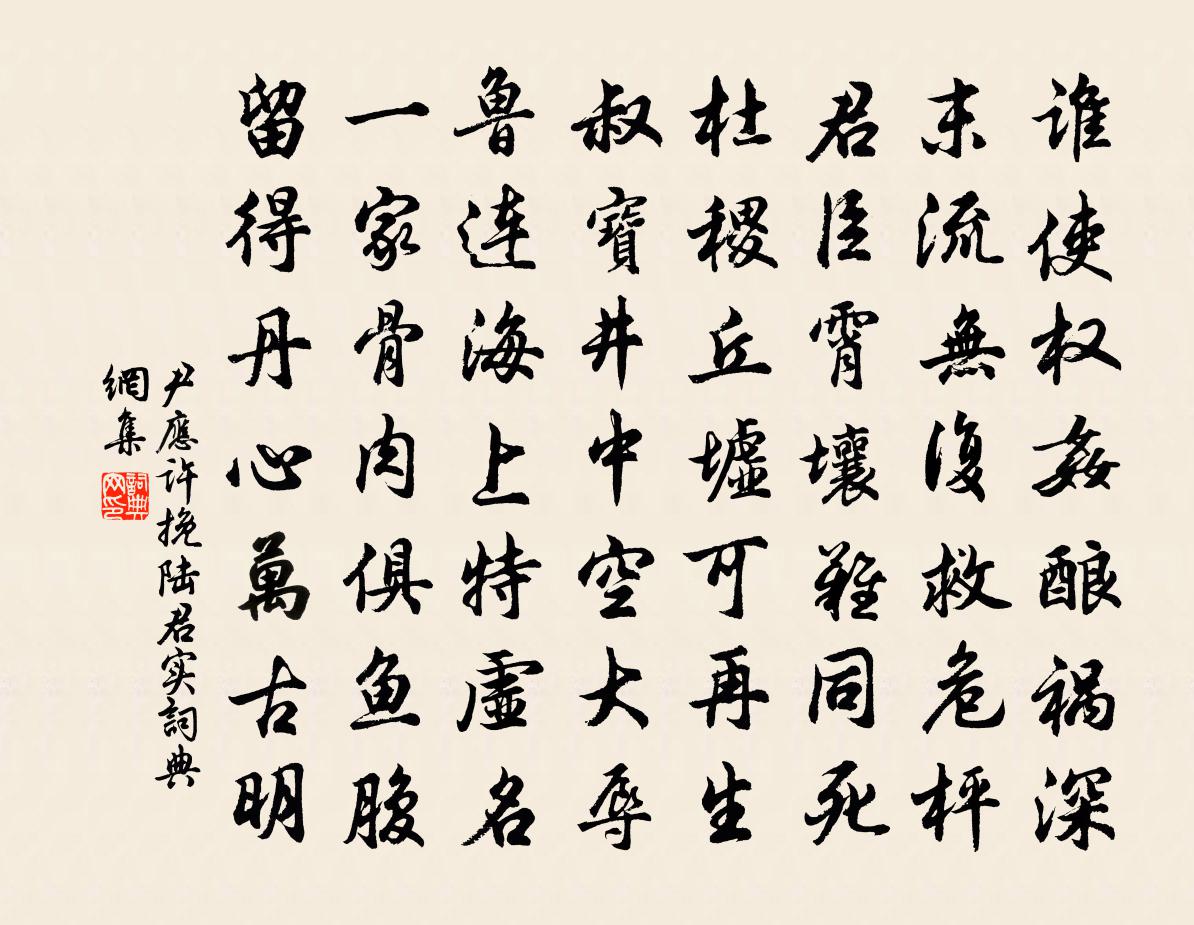 谁使权姦酿祸深
末流無復救危枰
君臣霄壤難同死
杜稷丘墟可再生
叔寶井中空大辱
魯连海上特虚名
一家骨肉俱鱼腹
留得丹心萬古明
尹應许挽陆君实詞典
網集
詞典
网印